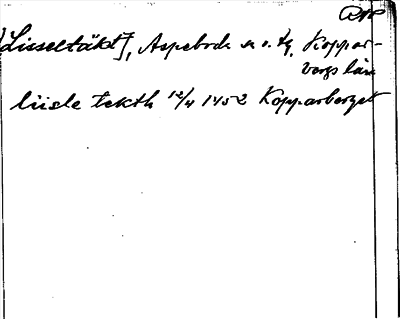 [Lisseltäkt], Aspeboda sn o. tg, Koppar-
bergs län
liisle tekth 12/4 1452 Kopparberget